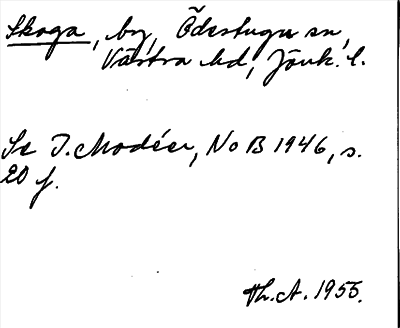 Skoga, by, Ödestugu sn,
Västra hd, Jönk. l.
Se I. Modéer, NoB 1946, s.
20 f.
Th. A. 1955.